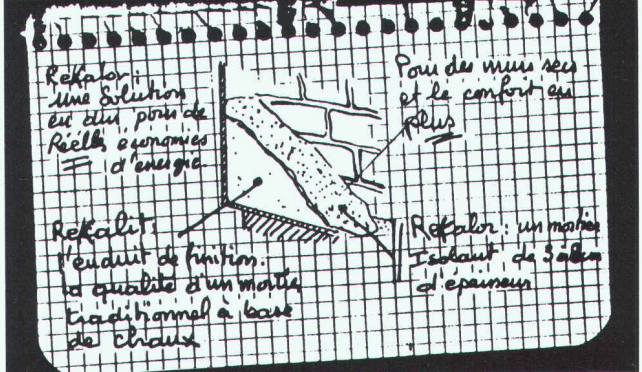 ReKalor :
une Solution
en dur pour de
Réelles économies
d'énergie
Pour des murs secs
et le confort en
plus
ReKalit :
l'enduit de finition.
la qualité d'un mortier
traditionnel à base
de chaux
ReKalor : un mortier
Isolant de
d'épaisseur